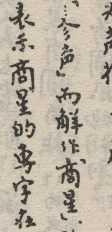 㐱声」而解作「商星」
表示商星的專字在